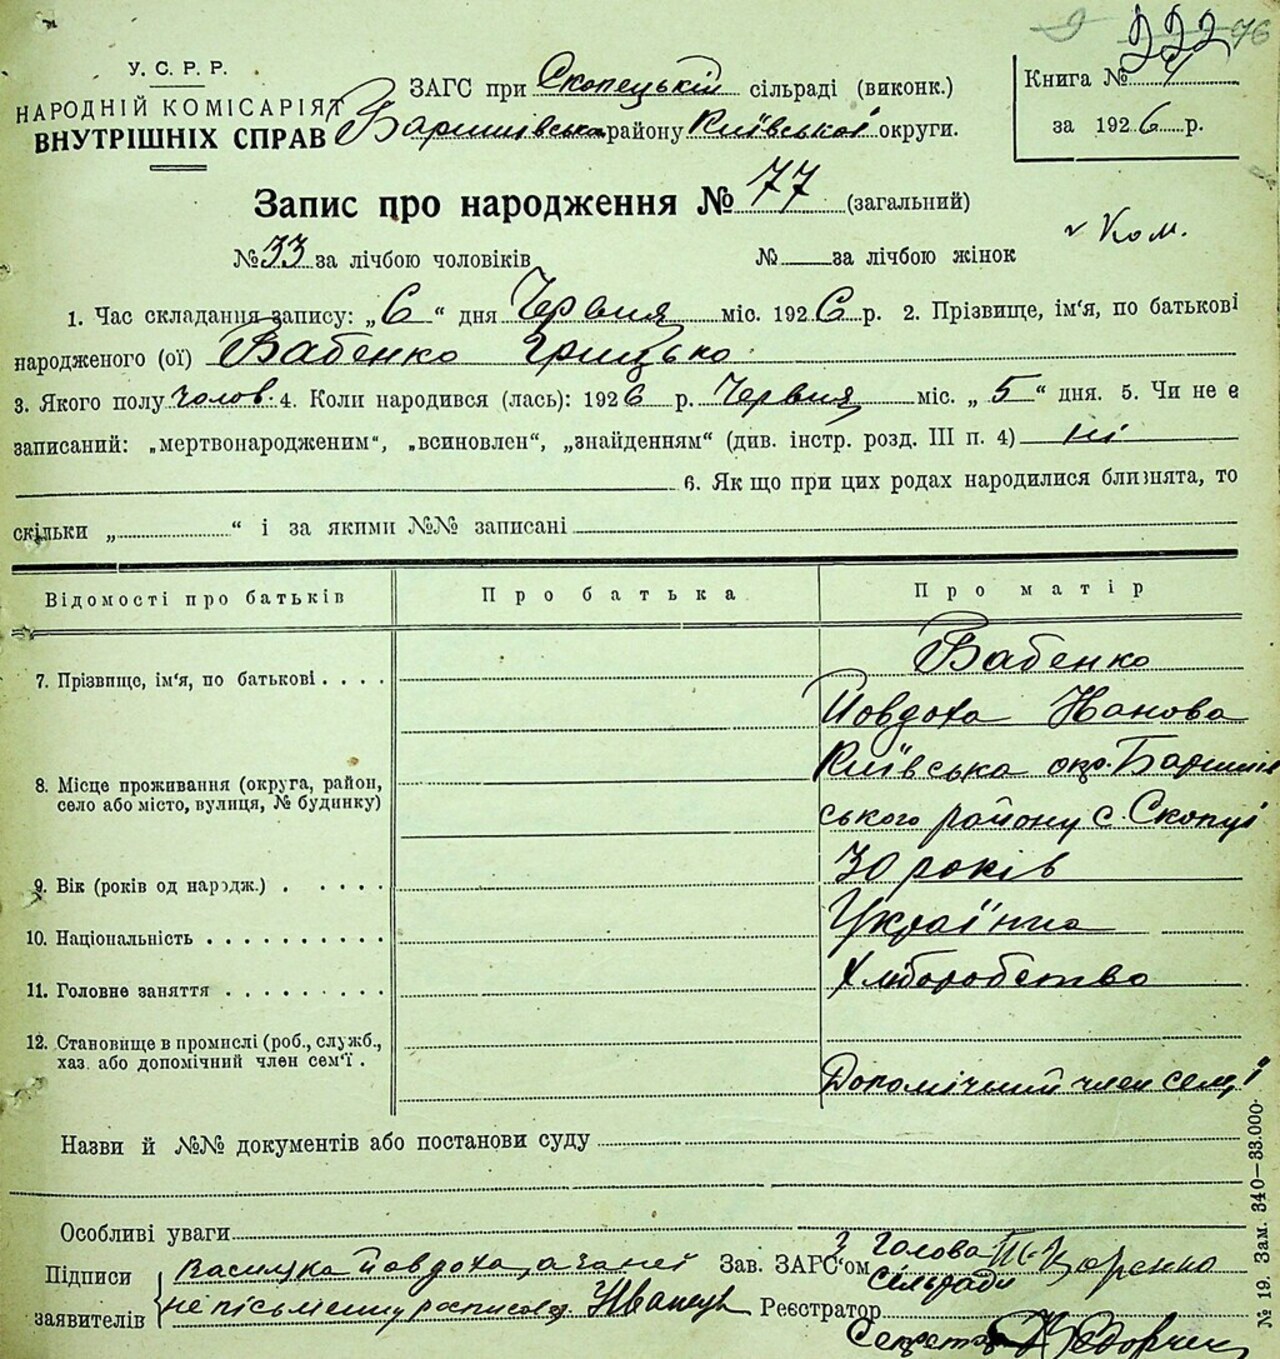 222 76
У. С. Р. Р.
НАРОДНІЙ КОМІСАРІЯТ
ВНУТРІШНІХ СПРАВ
ЗАГС при Скопецькій сільраді (виконк.)
Баришівська району Київської округи.
Книга № 4
за 1926 р.
Запис про народження № 77 (загальний)
№ 33 за лічбою чоловіків № за лічбою жінок
Ком.
1. Час складання запису: „6“ дня Червня міс. 1926 р. 2. Прізвище, ім'я, по батькові
народженого (ої) Бабенко Грицько
3. Якого полу чолов. 4. Коли народився (лась): 1926 р. Червня міс. „5“ дня. 5. Чи не є
записаний: „мертвонародженим“, „всиновлен“, „знайденням“ (див. інстр. розд. III п. 4) ні
6. Якщо при цих родах народилися близнята, то
скільки „ “ і за якими №№ записані
Відомості про батьків Про батька Про матір
7. Прізвище, ім'я, по батькові . . . . Бабенко
Йовдоха Іванова
8. Місце проживання (округа, район,
село або місто, вулиця, № будинку)
Київська окр. Баришів
ського району с. Скопці
9. Вік (років од народж.) . . . . . 30 років
10. Національність . . . . . . . . . . Українка
11. Головне заняття . . . . . . . . . Хліборобство
12. Становище в промислі (роб., служб.,
хаз. або допомічний член сем'ї .
Допомічний член семї
Назви й №№ документів або постанови суду
Особливі уваги
Підписи
заявителів
Йовдоха, а за неї
не письменну росписовсь
Зав. ЗАГС'ом Голова
Сільради
Реєстратор
Секретар
№ 19. Зам. 340—33.000.